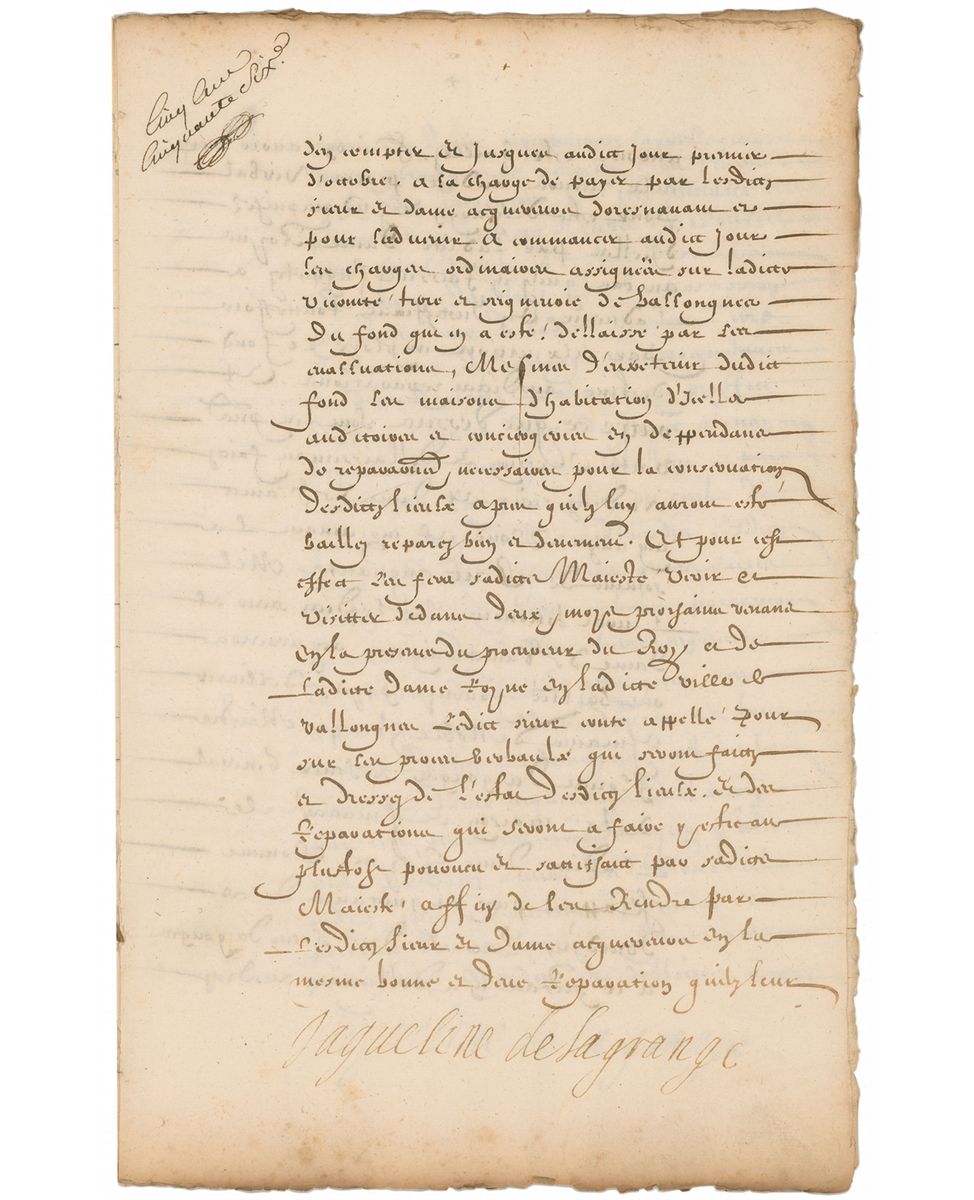 Cinq Cens
Cinquante Six.
d'en compter et Jusques audict Jour premier
d'octobre. a la charge de payer par lesdictz
sieur et dame acquereurs doresnavant et
pour ladvenir A commancer audict Jour
les charges ordinaires assignëes sur ladicte
viconté terre et seigneurie de Vallongnes
Du fond qui en a esté dellaissé par les
evalluations, Mesmes d'entretenir dudict
fond les maisons d'habitation d'Icelle
auditoires et conciergeries en deppendans
de reparaons necessaires pour la conservation
desdictz lieulx apres quilz luy auront esté
baillez reparez bien et deuement. Et pour cest
effect les fera sadicte Maiesté veoir et
visitter dedans deux moys prochains venans
en la presence du procureur du Roy, et de
Ladicte dame Royne en ladicte ville de
vallongnes Ledict sieur conte appellé Pour
sur les proces verbaulx qui seront faictz
et dressez de l'estat desdictz lieulx. et des
Reparations qui seront a faire y estre au
plustost pourveu et satisfaict par sadicte
Maiesté affin de les Rendre par
Lesdictz Sieur et Dame acquereurs en la
mesme bonne et deue Reparation quilz leur
Jaqueline de lagrange